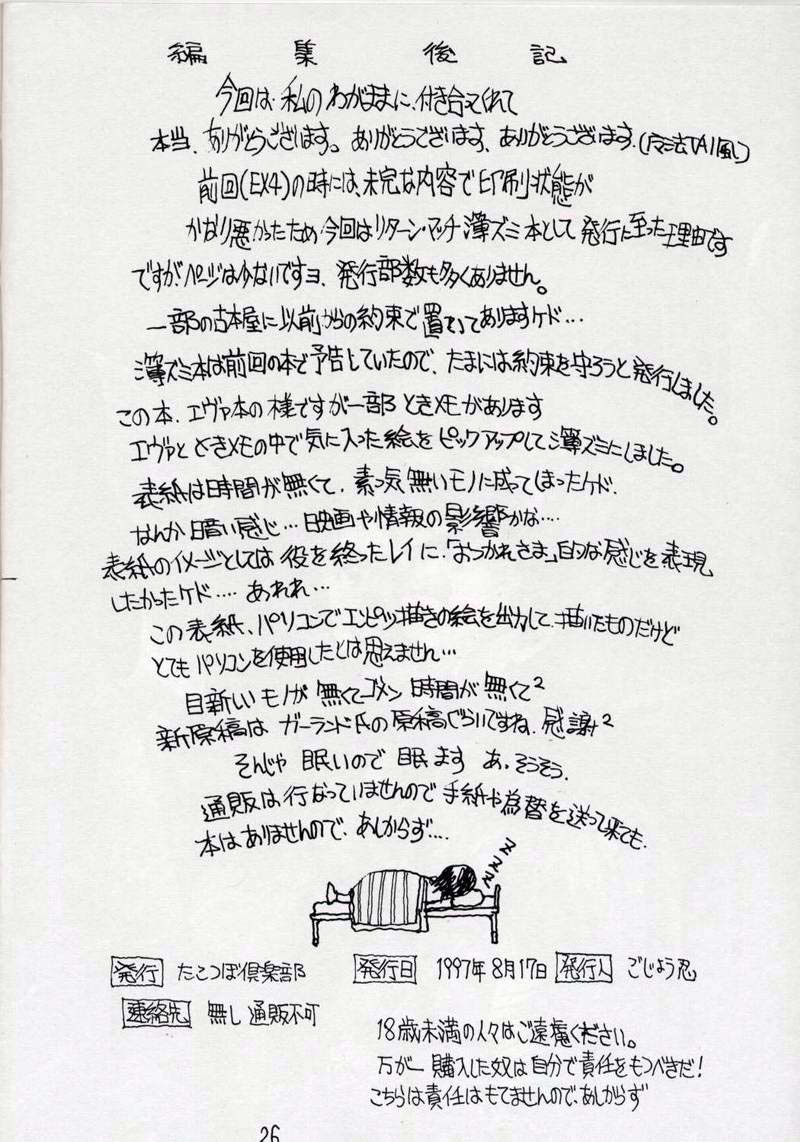 編集後記
今回は、私のわがままに、付き合ってくれて
本当、ありがとうございます。ありがとうございます、ありがとうございます。
前回(EX4)の時には、未完な内容で印刷状態が
かなり悪かったため今回はリターン・マッチ薄ズミ本として発行に至った理由です
ですが、ページは少ないですヨ、発行部数も多くありません。
一部の古本屋に以前からの約束で置いてありますケド…
薄ズミ本は前回の本で予告していたので、たまには約束を守ろうと発行しました。
この本、エヴァ本の様ですが一部ときメモがあります
エヴァとときメモの中で気に入った絵をピックアップして薄ズミにしました。
表紙は時間が無くて、素っ気無いモノに成ってしまったケド、
なんか暗い感じ…映画や情報の影響かな….
表紙のイメージとしては役を終ったレイに、「おつかれさま」的な感じを表現
したかったケド…. あれれ…
この表紙、パソコンでエンピツ描きの絵を出力して、描いたものだけど
とてもパソコンを使用したとは思えません…
目新しいモノが無くてゴメン 時間が無くて²
新原稿はガーランド氏の原稿ぐらいですね、感謝²
そんじゃ 眠いので 眠ます あ、そうそう、
通販は行なっていませんので手紙や為替を送って来ても、
本はありませんので、あしからず….
zzzz
発行 たこつぼ倶楽部 発行日 1997年8月17日 発行人 ごじょう忍
連絡先 無し 通販不可
18歳未満の人々はご遠慮ください。
万が一購入した奴は自分で責任をもつべきだ!
こちらは責任はもてませんので、あしからず
26